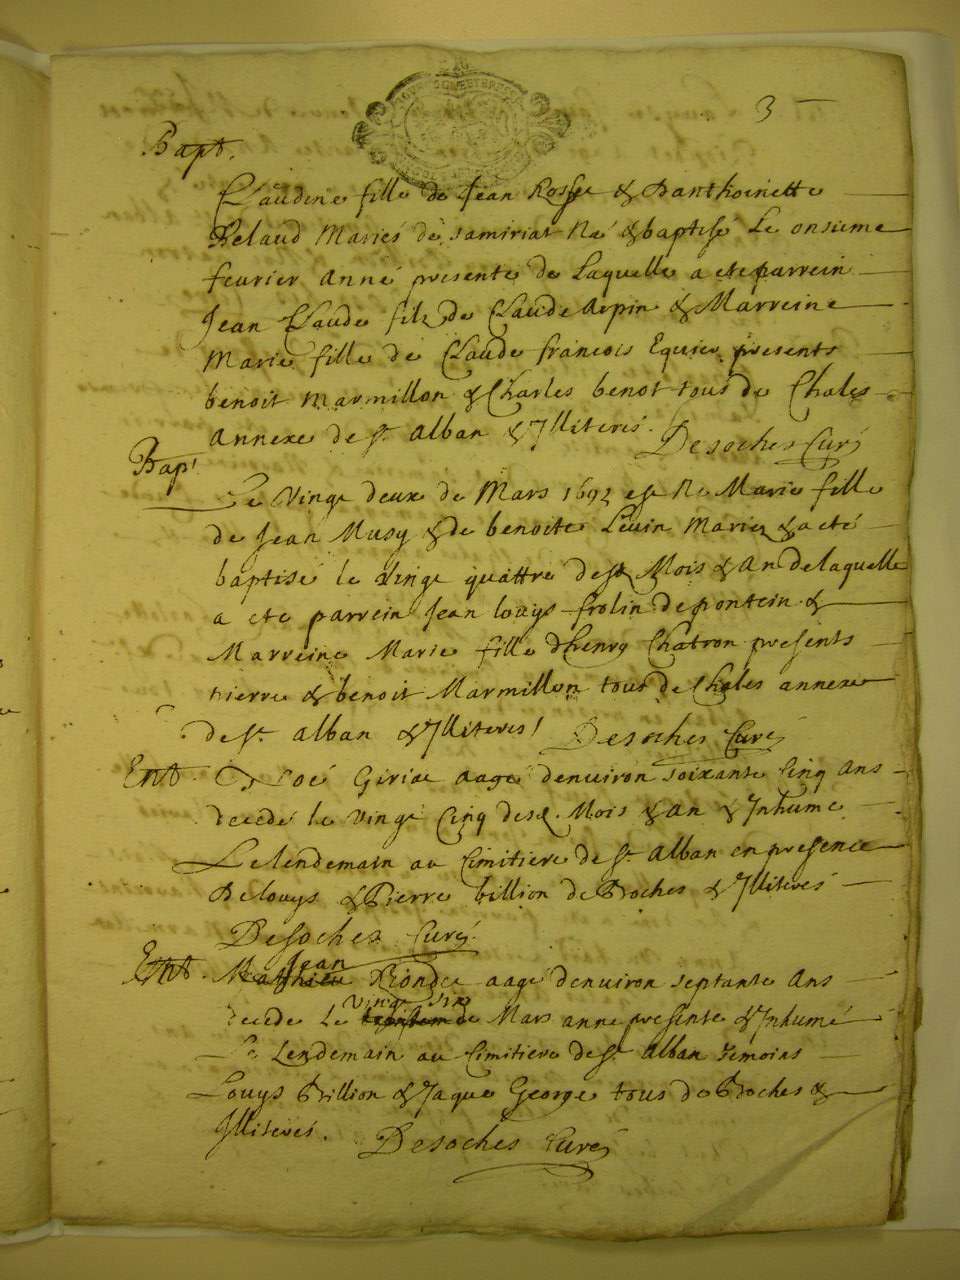 3
Bapt.
Claudine fille de Jean Rosse & D'anthoinette
Belaud Mariés de samiriat Né & baptisé Le onsieme
feurier anné presente de Laquelle a ete parrein
Jean Claude filz de Claude Arpin & Marreine
Marie fille de Claude francois Equier presents
benoit Marmillon & Charles benot tous de Chales
annexe de st. alban & Illiterés. Desoches Curé
Bapt
Le Vingt deux de Mars 1692 est Ne Marie fille
de Jean Musy & de benoite Leuin Mariez & a eté
baptisé le Vingt quattre desd Mois & an de laquelle
a ete parrein Jean louys frolin de pontein &
Marreine Marie fille d'henry Chatron presents
pierre & benoit Marmillon tous de Chales annexe
de st. alban & Illiterés Desoches Curé
Ent. Giriat aagé denuiron soixante Cinq ans
decedé le Vingt Cinq desd. Mois & an & Inhumé
Le lendemain au Cimitiere de st. alban en presence
De louys & Pierre billion de Broches & Illiterés
Desoches Curé
Ent. Jean Rionde aagé denuiron septante ans
Vingt
decede Le de Mars anne presente & Inhumé
Le Lendemain au Cimitiere de st. alban temoins
Louys Billion & Jaque George tous de Broches &
Illiterés. Desoches Curé